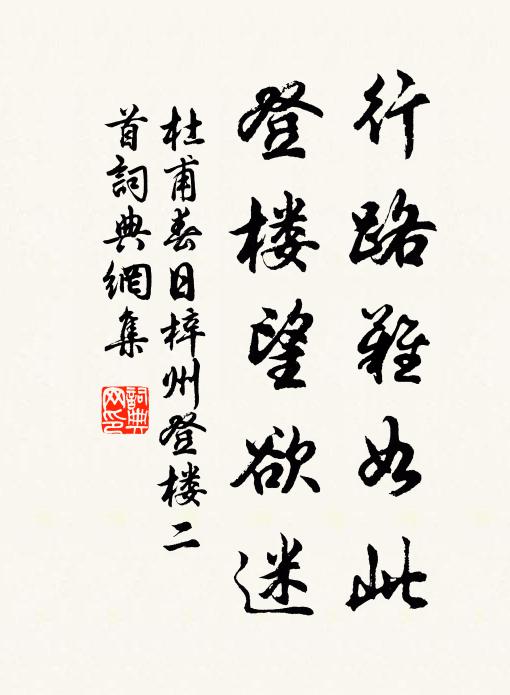 行路難如此
登楼望欲迷
杜甫春日梓州登楼二
首詞典網集
詞典网印